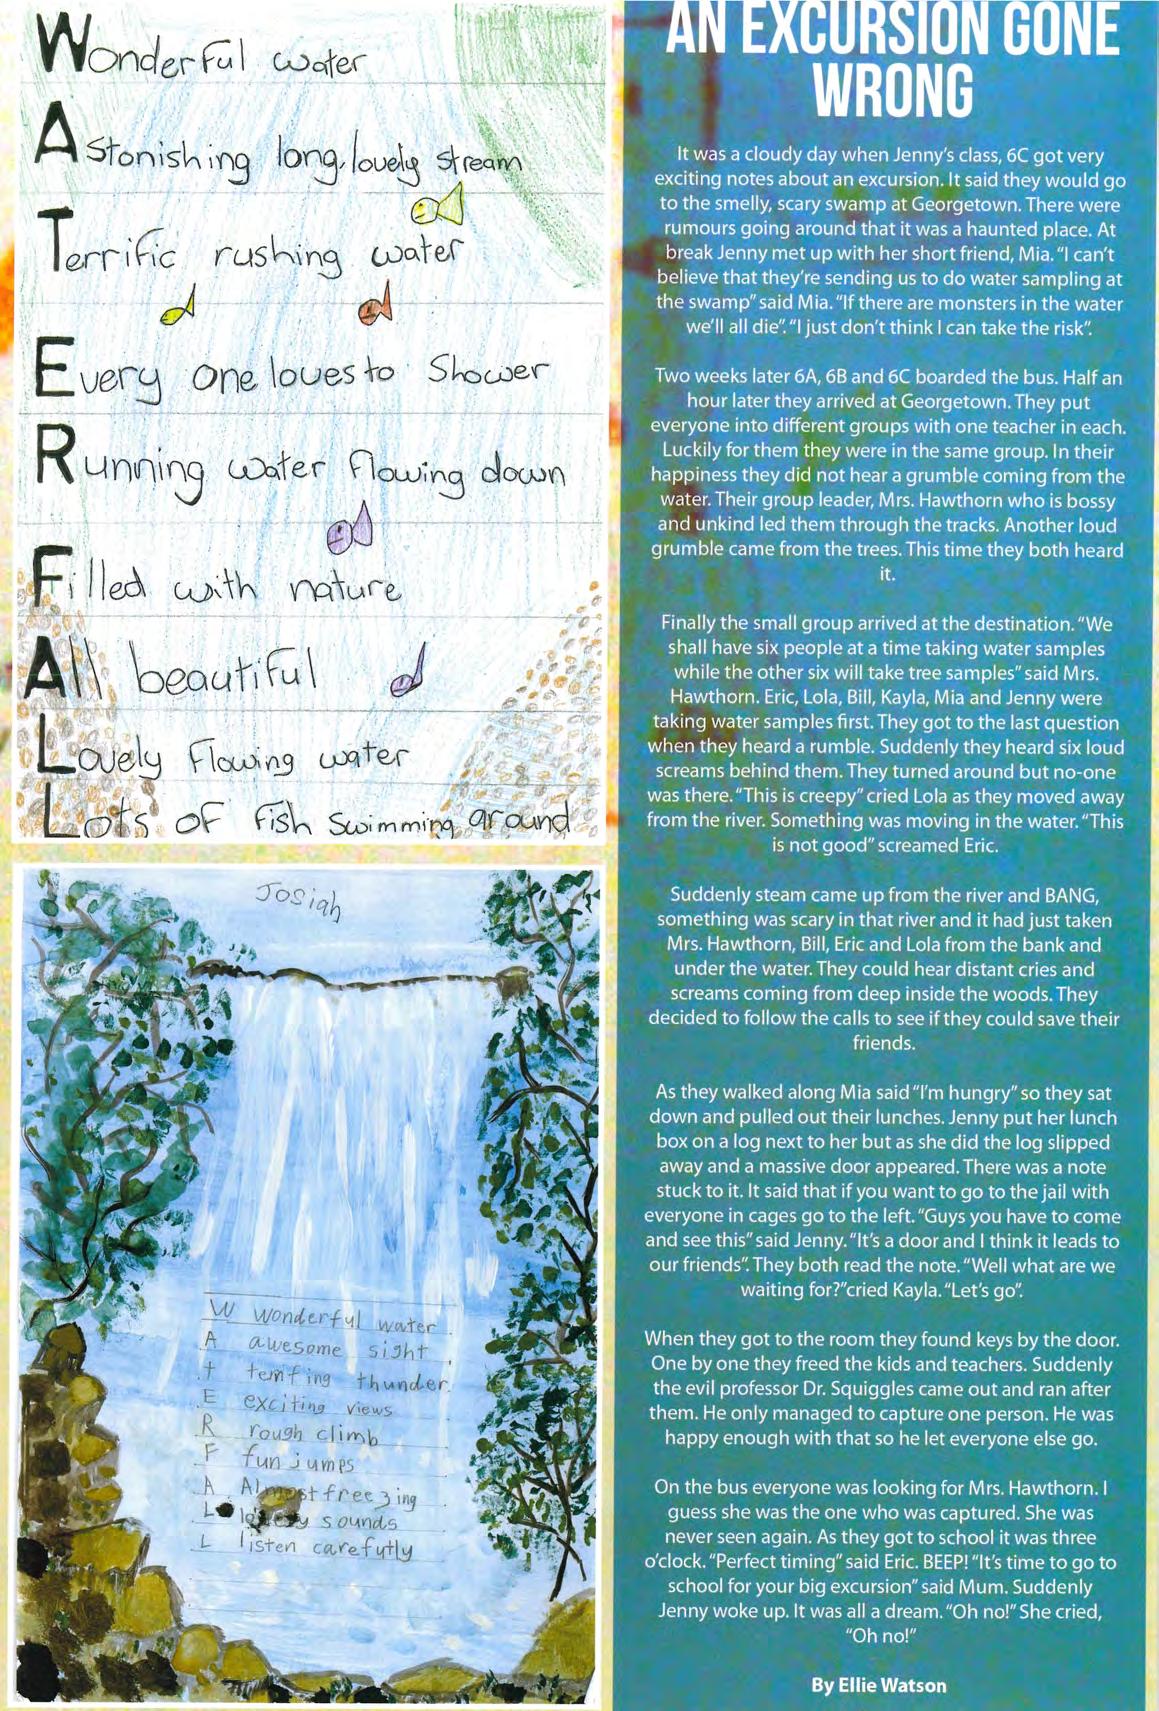 Wonderful water
Astonishing long, lovely stream
Terrific rushing water
Every one loves to Shower
Running water flowing down
Filled with nature
All beautiful
Lovely flowing water
Lots of fish swimming around
Josiah
W wonderful water
A awesome sight
t terrifing thunder
E exciting views
R rough climb
F fun jumps
A Almost freezing
L sounds
L listen carefully
AN EXCURSION GONE
WRONG
It was a cloudy day when Jenny's class, 6C got very
exciting notes about an excursion. It said they would go
to the smelly, scary swamp at Georgetown. There were
rumours going around that it was a haunted place. At
break Jenny met up with her short friend, Mia. "I can't
believe that they're sending us to do water sampling at
the swamp" said Mia. "If there are monsters in the water
we'll all die". "I just don't think I can take the risk".
Two weeks later 6A, 6B and 6C boarded the bus. Half an
hour later they arrived at Georgetown. They put
everyone into different groups with one teacher in each.
Luckily for them they were in the same group. In their
happiness they did not hear a grumble coming from the
water. Their group leader, Mrs. Hawthorn who is bossy
and unkind led them through the tracks. Another loud
grumble came from the trees. This time they both heard
it.
Finally the small group arrived at the destination. "We
shall have six people at a time taking water samples
while the other six will take tree samples" said Mrs.
Hawthorn. Eric, Lola, Bill, Kayla, Mia and Jenny were
taking water samples first. They got to the last question
when they heard a rumble. Suddenly they heard six loud
screams behind them. They turned around but no-one
was there. "This is creepy" cried Lola as they moved away
from the river. Something was moving in the water. "This
is not good" screamed Eric.
Suddenly steam came up from the river and BANG,
something was scary in that river and it had just taken
Mrs. Hawthorn, Bill, Eric and Lola from the bank and
under the water. They could hear distant cries and
screams coming from deep inside the woods. They
decided to follow the calls to see if they could save their
friends.
As they walked along Mia said "I'm hungry" so they sat
down and pulled out their lunches. Jenny put her lunch
box on a log next to her but as she did the log slipped
away and a massive door appeared. There was a note
stuck to it. It said that if you want to go to the jail with
everyone in cages go to the left. "Guys you have to come
and see this" said Jenny. "It's a door and I think it leads to
our friends". They both read the note. "Well what are we
waiting for?"cried Kayla. "Let's go".
When they got to the room they found keys by the door.
One by one they freed the kids and teachers. Suddenly
the evil professor Dr. Squiggles came out and ran after
them. He only managed to capture one person. He was
happy enough with that so he let everyone else go.
On the bus everyone was looking for Mrs. Hawthorn. I
guess she was the one who was captured. She was
never seen again. As they got to school it was three
o'clock. "Perfect timing" said Eric. BEEP! "It's time to go to
school for your big excursion" said Mum. Suddenly
Jenny woke up. It was all a dream. "Oh no!" She cried,
"Oh no!"
By Ellie Watson